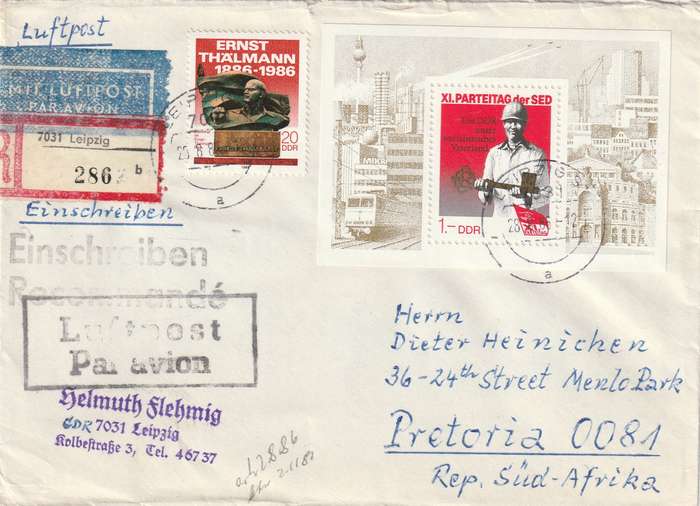 Luftpost
MIT LUFTPOST
PAR AVION
R
7031 Leipzig
286 b
Einschreiben
Einschreiben
Recommandé
Luftpost
Par avion
Helmuth Flehmig
GDR 7031 Leipzig
Kolbestraße 3, Tel. 46737
ERNST
THÄLMANN
1886-1986
20
DDR
a
XI. PARTEITAG der SED
Die DDR
mein
sozialistisches
Vaterland
MIKR
1.– DDR
a
Herrn
Dieter Heinichen
36-24th Street Menlo Park
Pretoria 0081
Rep. Süd-Afrika